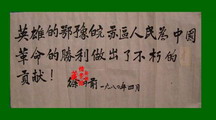 英雄的鄂豫皖苏区人民为中國
革命的勝利做出了不朽的
貢献！
徐向前 一九八〇年四月